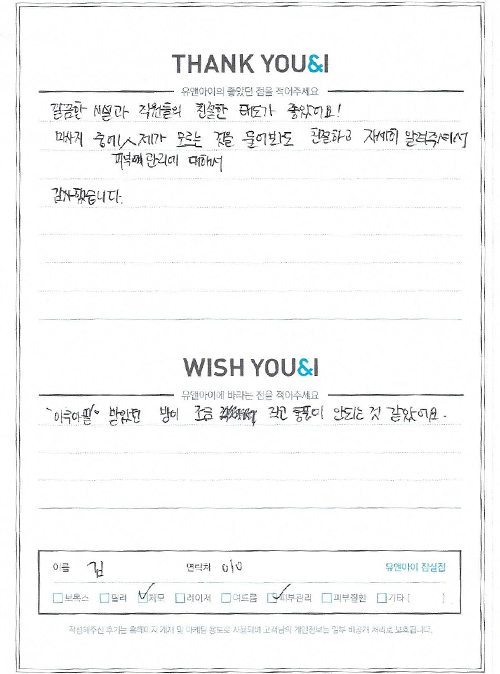 THANK YOU&I
유앤아이의 좋았던 점을 적어주세요
깔끔한 시설과 직원들의 친절한 태도가 좋았어요!
마사지 중에 제가 모르는 것을 물어봐도 친절하고 자세히 알려주셔서
피부관리에 대해서
감사했습니다.
WISH YOU&I
유앤아이에 바라는 점을 적어주세요
"아쿠아필" 받았던 방이 조금 작고 통풍이 안되는 것 같았어요.
이름 김 연락처 010 유앤아이 잠실점
보톡스 필러 제모 레이저 여드름 피부관리 피부질환 기타 ( )
작성해주신 후기는 홈페이지 게재 및 마케팅 용도로 사용되며 고객님의 개인정보는 일부 비공개 처리로 보호됩니다.